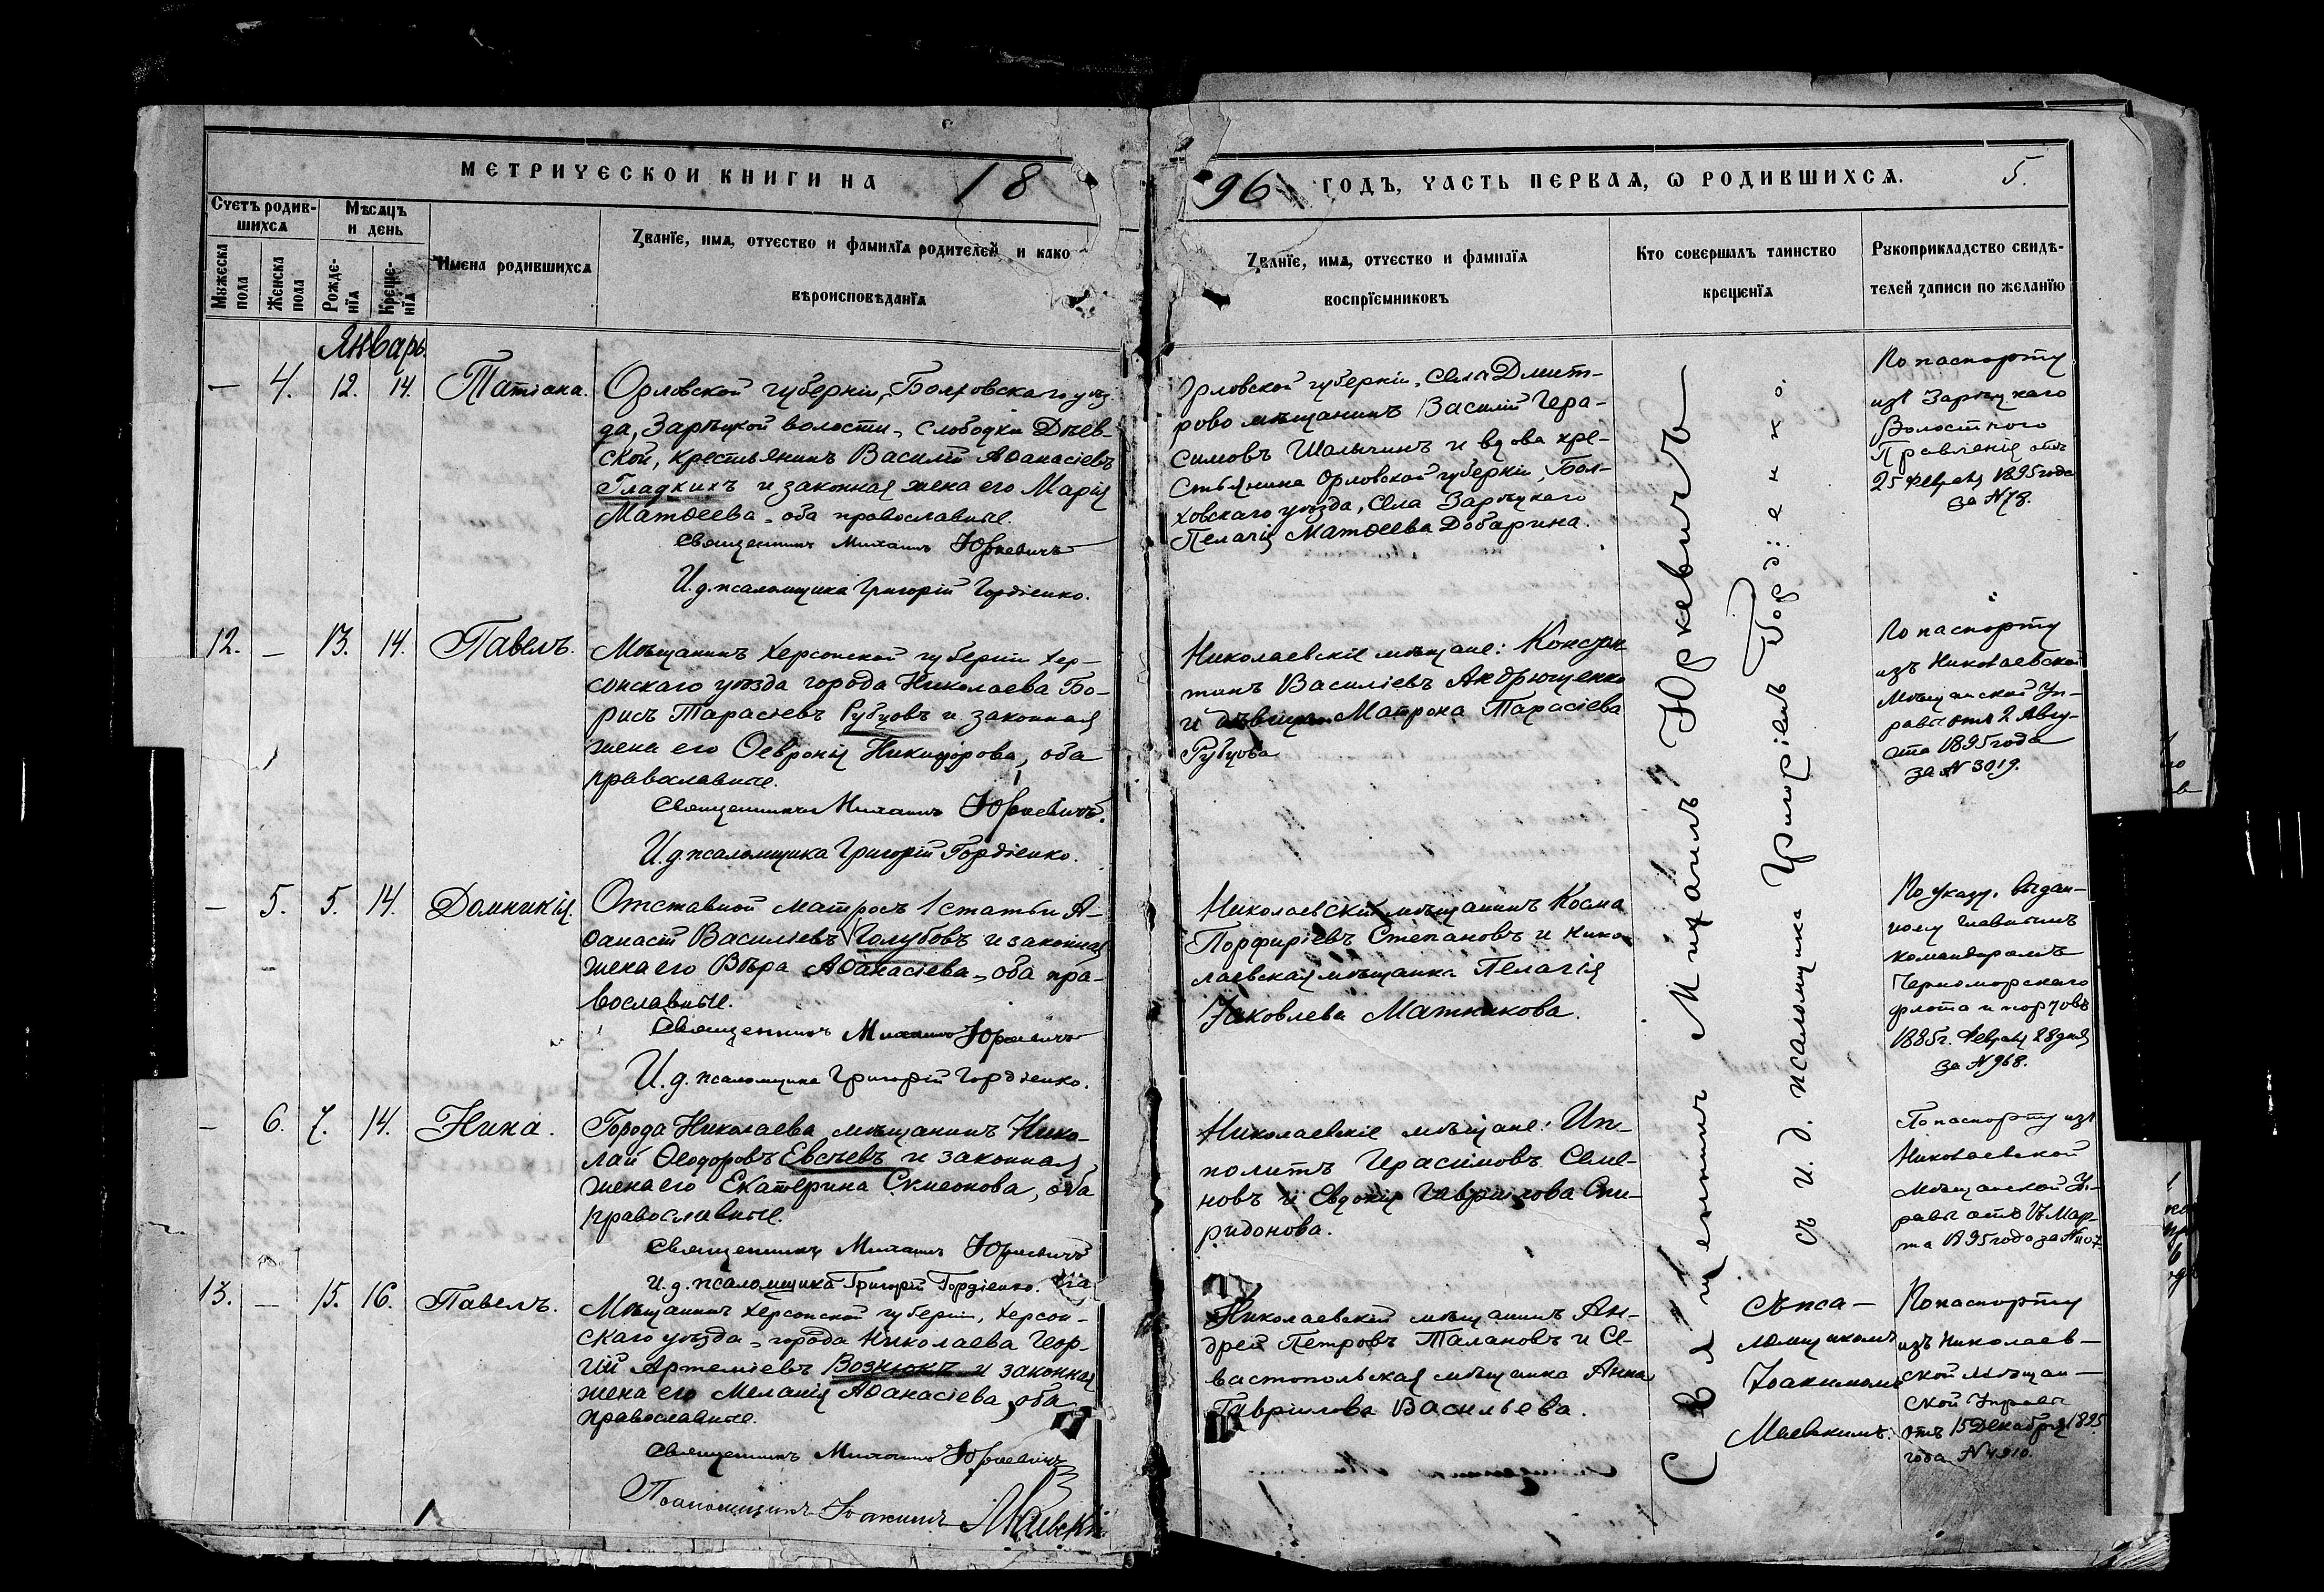 МЕТРИЧЕСКОЙ КНИГИ НА 18
96 ГОДЪ, ЧАСТЬ ПЕРВАЯ, Ѡ РОДИВШИХСЯ.
5.
Счетъ родив-
шихся
Мѣсяцъ
и день
Мужеска
пола
Женска
пола
Рожде-
нія
Креще-
нія
Имена родившихся
Званіе, имя, отчество и фамилія родителей и како
вѣроисповѣданія
Званіе, имя, отчество и фамилія
воспріемниковъ
Кто совершалъ таинство
крещенія
Рукоприкладство свидѣ-
телей записи по желанію
Январь
— 4. 12. 14. Татіана.
Орловской губерніи, Болховскаго уѣз
да, Зарѣцкой волости, слободки Діев-
ской, крестьянинъ Василій Аѳанасіевъ
Гладкихъ и законная жена его Марія
Матѳеева, оба православные.
Священникъ Михаилъ Юркевичъ
И. д. псаломщика Григорій Гордіенко.
Орловской губерніи, села Дмит-
рово мѣщанинъ Василій Гера-
симовъ Шалыгинъ и вдова кре-
стьянина Орловской губерніи, Бол-
ховскаго уѣзда, села Зарѣцкаго
Пелагія Матѳеева Добарина.
По паспорту
изъ Зарѣцкаго
Волостного
Правленія отъ
25 Февраля 1895 года
за № 78.
12. — 13. 14. Павелъ.
Мѣщанинъ Херсонской губерніи Хер-
сонскаго уѣзда города Николаева Бо-
рисъ Тарасіевъ Рубцовъ и законная
жена его Февронія Никифорова, оба
православные.
Священникъ Михаилъ Юркевичъ.
И. д. псаломщика Григорій Гордіенко.
Николаевскіе мѣщане: Констан
тинъ Василіевъ Андрющенко
и дѣвица Матрона Тарасіева
Рубцова
По паспорту
изъ Николаевской
Мѣщанской Уп-
равы отъ 2 Авгу-
ста 1895 года
за № 3019.
— 5. 5. 14. Домникія.
Отставной матросъ 1 статьи А-
ѳанасій Василіевъ Голубовъ и законная
жена его Вѣра Аѳанасіева, оба пра-
вославные.
Священникъ Михаилъ Юркевичъ
И. д. псаломщика Григорій Гордіенко.
Николаевскій мѣщанинъ Косма
Порфиріевъ Степановъ и Нико
лаевская мѣщанка Пелагія
Іаковлева Матникова.
По указу, выдан-
ному Главнымъ
командиромъ
Черноморскаго
флота и портовъ
1885 г. Февраля 28 дня
за № 968.
— 6. 7. 14. Нина.
Города Николаева мѣщанинъ Нико-
лай Ѳеодоровъ Евсѣевъ и законная
жена его Екатерина Симеонова, оба
православные.
Священникъ Михаилъ Юркевичъ
И. д. псаломщика Григорій Гордіенко.
Николаевскіе мѣщане: Ип-
политъ Герасимовъ Семе-
новъ и Евдокія Гавріилова Спи-
ридонова.
По паспорту изъ
Николаевской
Мѣщанской Уп-
равы отъ Мар-
та 1895 года за № 1107
13. — 15. 16. Павелъ.
Мѣщанинъ Херсонской губерніи, Херсон-
скаго уѣзда, города Николаева Геор-
гій Артеміевъ Вознюкъ и законная
жена его Меланія Аѳанасіева, оба
православные.
Священникъ Михаилъ Юркевичъ
Псаломщикъ Іоакимъ Маевскій
Николаевскій мѣщанинъ Ан-
дрей Петровъ Талановъ и Се-
вастопольская мѣщанка Анна
Гавріилова Васильева.
Священникъ Михаилъ Юркевичъ
съ и. д. псаломщика Григоріемъ Гордіенко.
Съ пса-
ломщикомъ
Іоакимомъ
Маевскимъ.
По паспорту
изъ Николаев-
ской Мѣщан-
ской Управы
отъ 15 Декабря 1895
года № 4910.